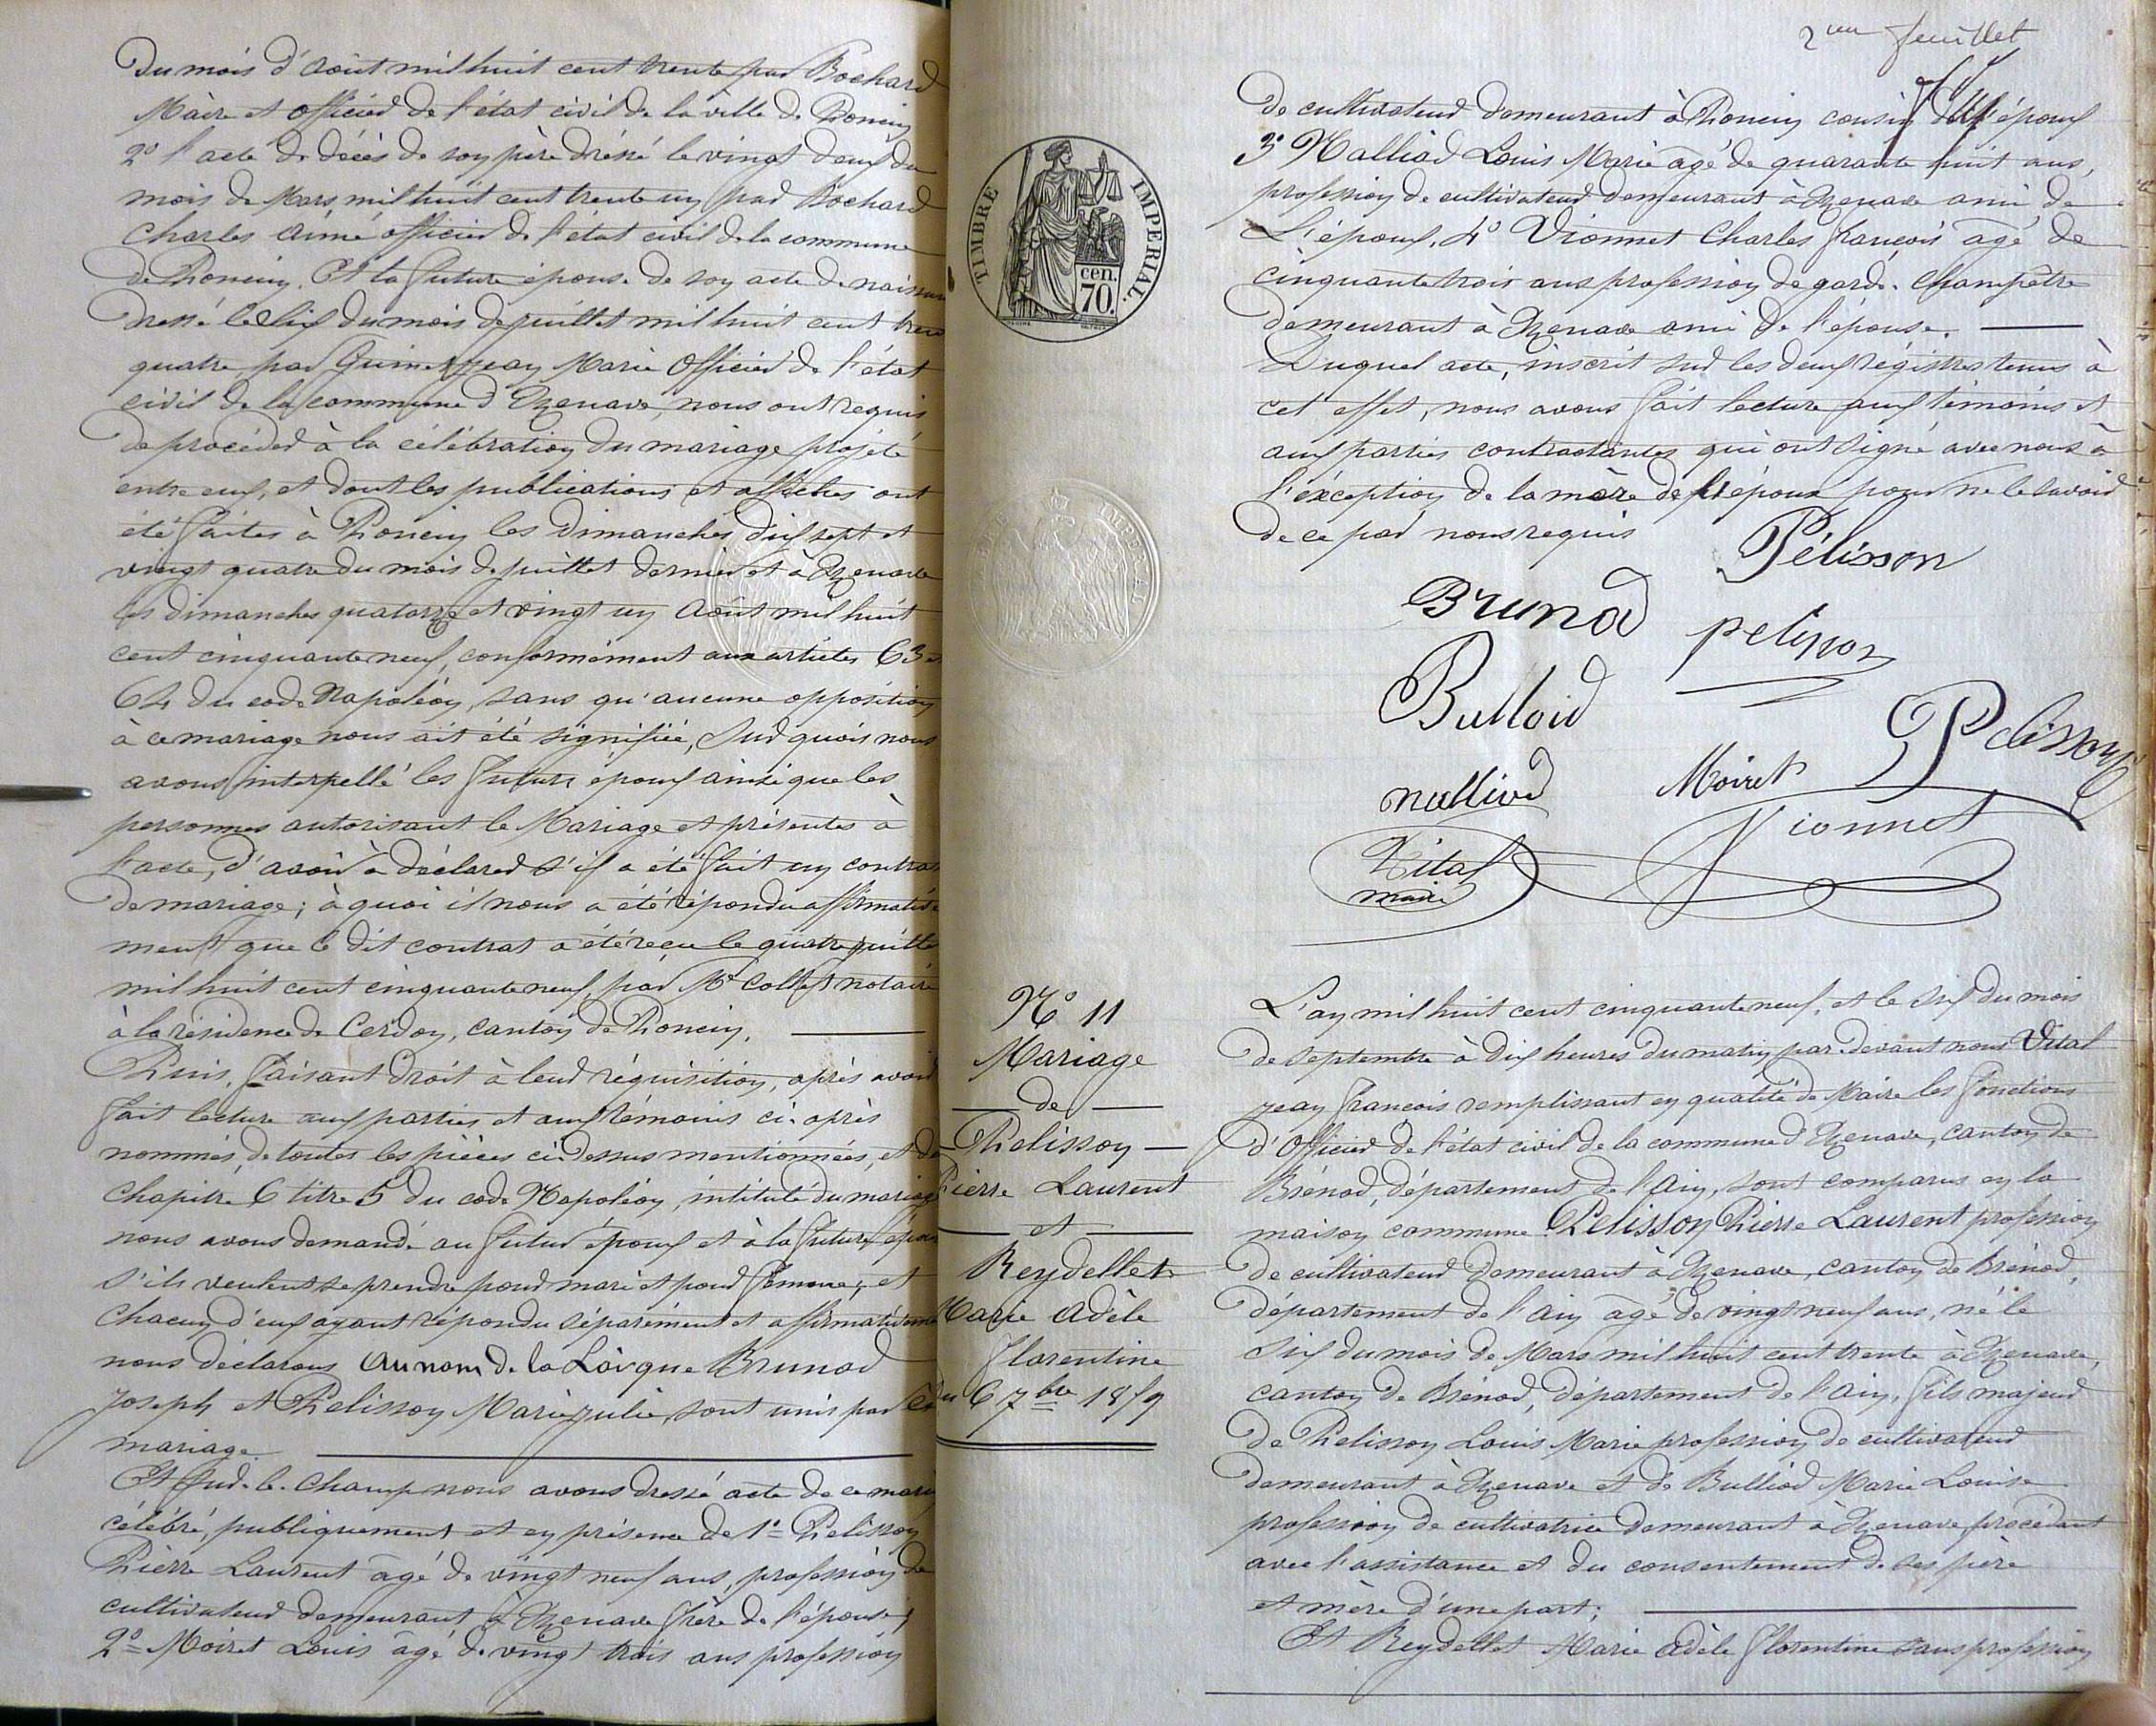 Du mois d'Aoüt mil huit cent trente par Bochard
Màire et officier de l'état civil de la ville de Poncin
2º l'acte de décès de son père dréssé le vingt deux du
mois de Mars mil huit cent trente un par Bochard
Charles Aimé officier de l'état civil de la commune
de Poncin. Et la future épouse de son acte de naissan
dressé le dix du mois de juillet mil huit cent tren
quatre, par Guinet jean Marie Officier de l'état
civil de la commune d'Izenave, nous ont requis
de procéder à la célébration du mariage projeté
entre eux, et dont les publications et affiches ont
été faites à Poncin les Dimanches dix sept et
vingt quatre du mois de juillet dernier et à Izenave
les dimanches quatorze et vingt un Aoüt mil huit
cent cinquante neuf, conformément aux articles 63 et
64 du code Napoléon, sans qu'aucune opposition
à ce mariage nous ait été signifiée, Sur quoi nous
avons interpellé les futurs époux ainsi que les
personnes autorisant le Mariage et présentes à
l'acte, d'avoir à déclarer s'il a été fait un contrat
de mariage; à quoi il nous a été répondu affirmative
ment que le dit contrat a été reçu le quatre juillet
mil huit cent cinquante neuf, par Me Collet notaire
à la résidence de Cerdon, canton de Poncin.
Puis, faisant droit à leur réquisition, après avoir
fait lecture aux parties et aux témoins ci-après
nommés, de toutes les pièces ci-dessus mentionnées, et du
chapitre 6 titre 5 du code Napoléon, intitulé du mariage
nous avons demandé au futur époux et à la future épouse
s'ils veulent se prendre pour mari et pour femme; et
chacun d'eux ayant répondu séparément et affirmativement
nous déclarons Au nom de la Loi que Brunod
joseph et Pelisson Marie julie, sont unis par le
mariage
Et sur-le-champ nous avons dressé acte de ce maria
célébré, publiquement et en présence de 1º Pelisson
Pièrre Laurent âgé de vingt neuf ans, profession de
cultivateur demeurant à Izenave frère de l'épouse,
2º Moiret Louis âgé de vingt trois ans profession
TIMBRE IMPERIAL.
cen.
70.
2me feuillet
de cultivateur demeurant à Poncin cousin de l'époux
3º Nallied Louis Marie âgé de quarante huit ans,
profession de cultivateur demeurant à Izenave ami de
L'époux, 4º Vionnet Charles françois âgé de
cinquante trois ans profession de garde-champêtre
demeurant à Izenave ami de l'épouse.
Duquel acte, inscrit sur les deux régistres tenus à
cet effet, nous avons fait lecture aux témoins et
aux parties contractantes qui ont signé avec nous à
l'éxception de la mère de l'époux pour ne le savoir
de ce par nous requis
Pélisson
Brunod
pelisson
Bulloid
Pelisson
Moiret
nallied
Vionnet
Vital
maire
Nº 11
Mariage
de
Pelisson
Pierre Laurent
et
Reydellet
Marie Adèle
florentine
du 6 7bre 1859
L'an mil huit cent cinquante neuf, et le Six du mois
de septembre à Dix heures du matin par-devant nous Vital
jean françois remplissant en qualité de Maire les fonctions
d'Officier de l'état civil de la commune d'Izenave, canton de
Brénod, département de l'Ain, sont comparus en la
maison commune Pelisson Pierre Laurent profession
de cultivateur demeurant à Izenave, canton de Brénod,
département de l'ain âgé de vingt neuf ans, né le
Six du mois de Mars mil huit cent trente à Izenave,
canton de Brénod, département de l'Ain, fils majeur
de Pelisson Louis Marie profession de cultivateur
demeurant à Izenave et de Bulliod Marie Louise
profession de cultivatrice demeurant à Izenave procédant
avec l'assistance et du consentement de ses père
et mère d'une part;
Et Reydellet Marie Adèle florentine sans profession